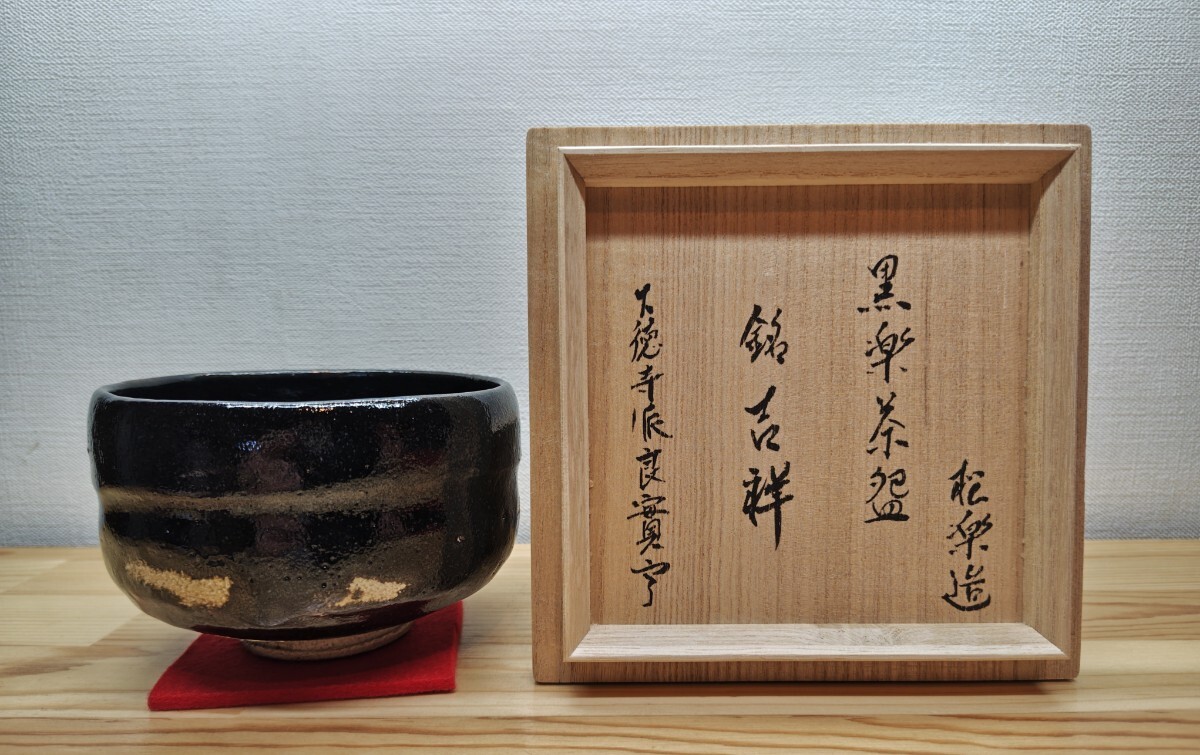 松楽造
黒楽茶盌
銘 吉祥
大徳寺派良實亨